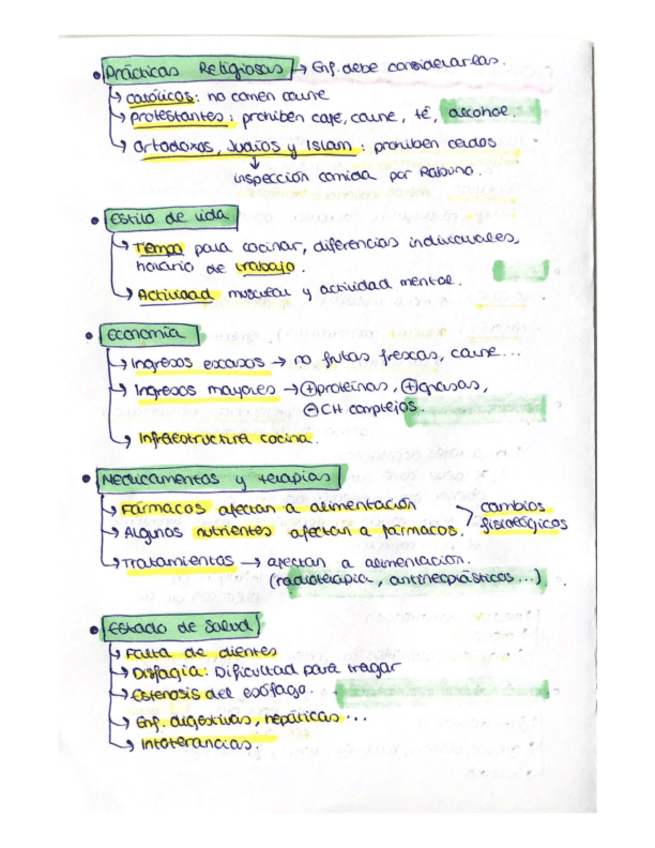 • Prácticas Religiosas → Enf. debe considerarlas.
→ católicos: no comen carne
→ Protestantes: prohiben café, carne, té, alcohol.
→ Ortodoxos, Judíos y Islam: prohiben cerdos
↓
inspección comida por Rabino.
• Estilo de vida
→ Tiempo para cocinar, diferencias individuales,
horario de trabajo.
→ Actividad muscular y actividad mental.
• Economía
→ Ingresos escasos → no frutas frescas, carne...
→ Ingresos mayores → ⊕proteínas, ⊕grasas,
⊖CH complejos.
→ Infraestructura cocina.
• Medicamentos y terapias
→ Fármacos afectan a alimentación
→ Algunos nutrientes afectan a fármacos. > cambios
fisiológicos
→ Tratamientos → afectan a alimentación.
(radioterapia, antineoplásticos...)
• Estado de Salud
→ Falta de dientes
→ Disfagia: Dificultad para tragar
→ Estenosis del esófago.
→ Enf. digestivas, hepáticas...
→ Intolerancias.